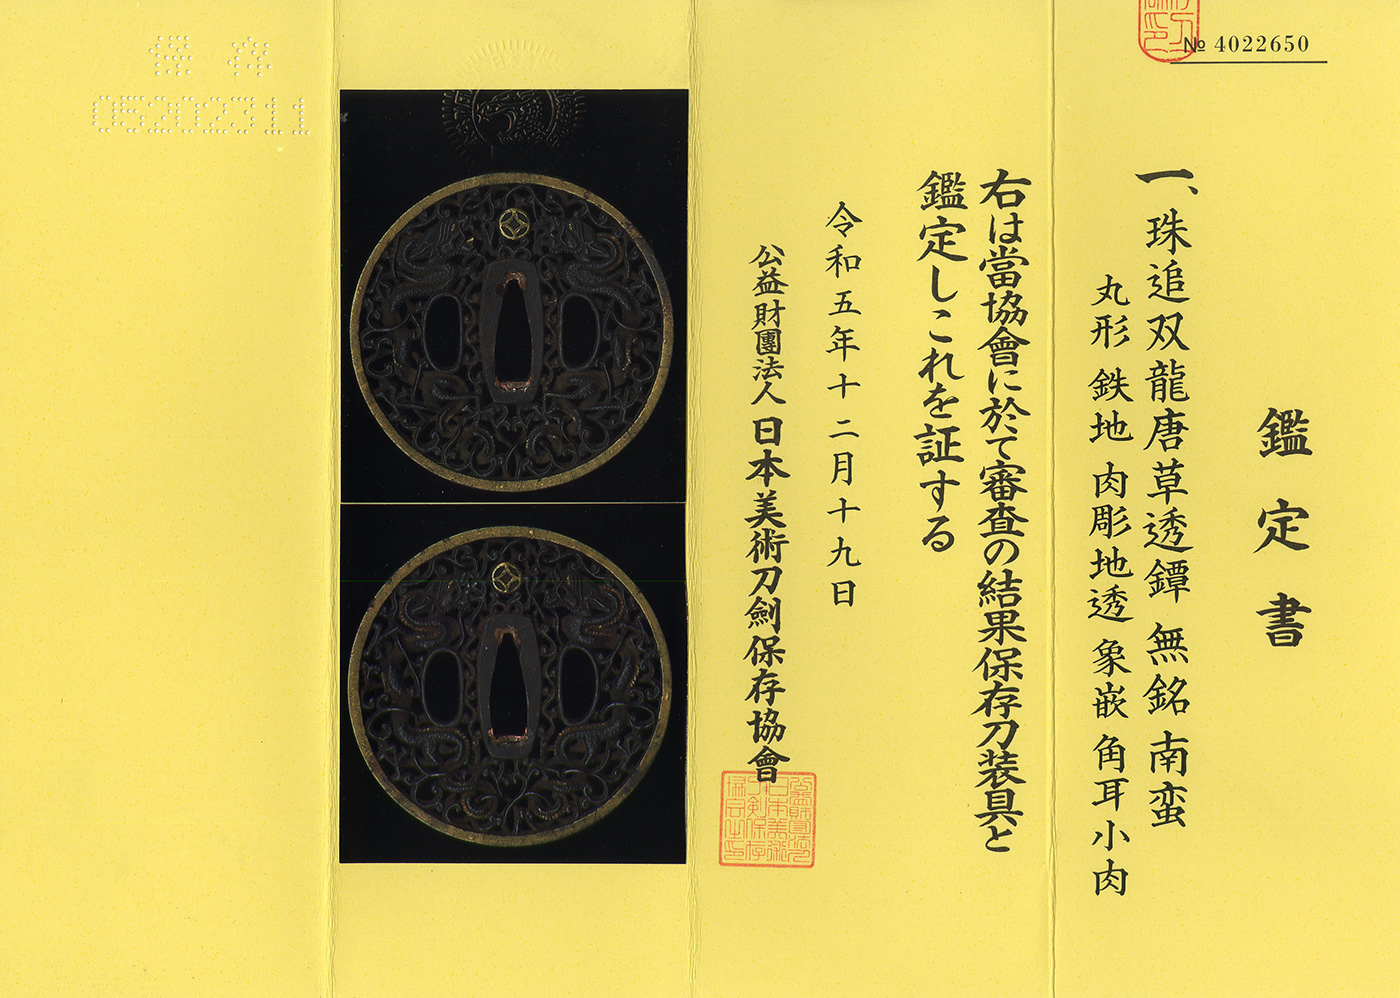 № 4022650
鑑定書
一、珠追双龍唐草透鐔 無銘 南蛮
丸形 鉄地 肉彫地透 象嵌 角耳小肉
右は當協會に於て審査の結果保存刀装具と
鑑定しこれを証する
令和五年十二月十九日
公益財團法人 日本美術刀劍保存協會
保存
05202311